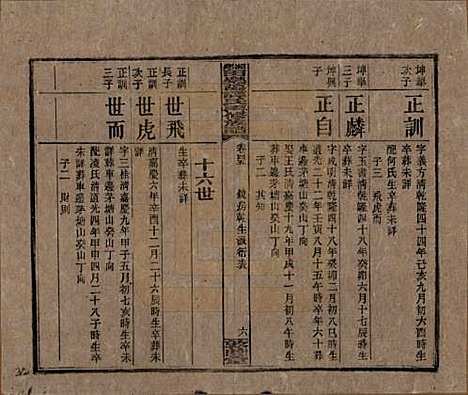 坤舉次子
正訓
字義方清乾隆四十四年己亥九月初六酉時生
卒葬未詳
配何氏生卒葬未詳
子三 飛虎而
坤舉三子
正麟
字玉書清乾隆四十八年癸卯六月十七辰時生
卒葬未詳
坤興子
正自
字成明清乾隆四十八年癸卯二月初八巳時生
道光二十二年壬寅八月十五午時卒年六十葬
車邊茅塘山癸山丁向
娶王氏清嘉慶十九年甲戌十一月初八午時生
卒葬車邊茅塘山癸山丁向
子二 其知
卷
乾生派衍表
六
十六世
正訓長子
世飛
生卒葬未詳
正訓次子
世虎
清嘉慶六年辛酉十二月二十六辰時生卒葬未
詳
正訓三子
世而
字三桂清嘉慶九年甲子五月初七亥時生卒未
詳葬車邊茅塘山癸山丁向
配凌氏清道光四年甲申四月二十八子時生卒
未詳葬車邊茅塘山癸山丁向
子二 財則